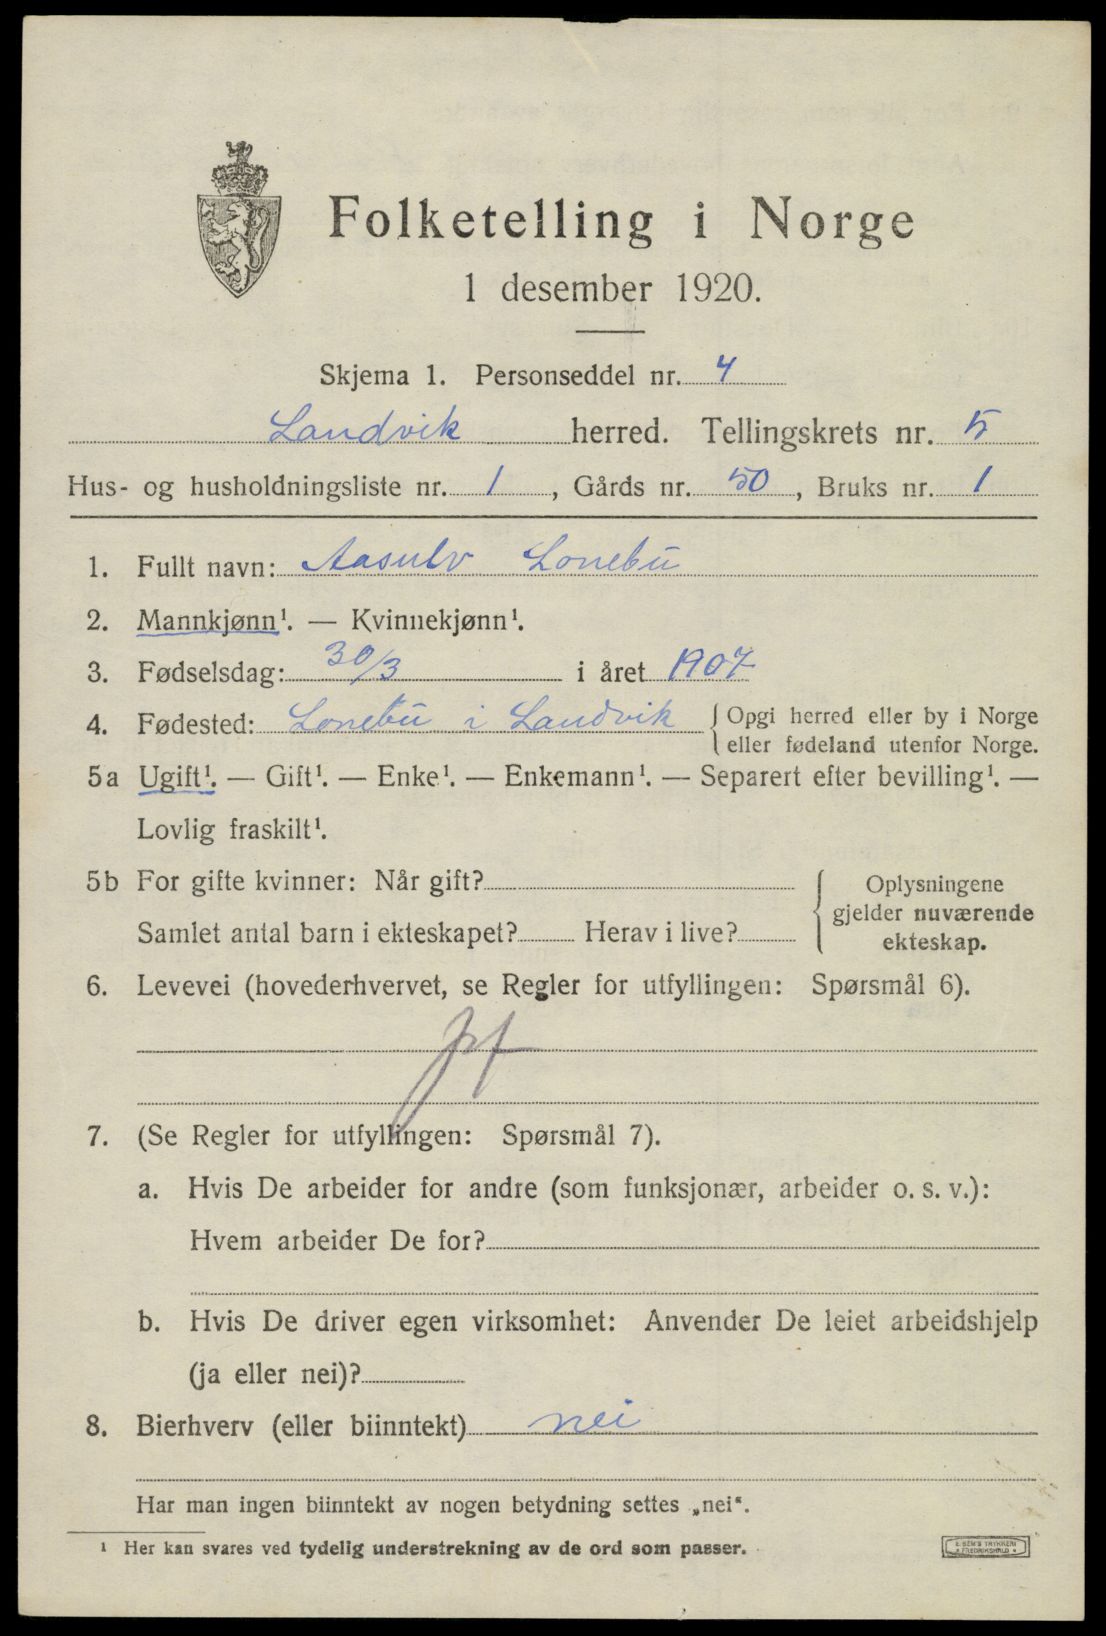 Folketelling i Norge
1 desember 1920.
Skjema 1. Personseddel nr. 4
Landvik herred. Tellingskrets nr. 5
Hus- og husholdningsliste nr. 1, Gårds nr. 50, Bruks nr. 1
1. Fullt navn: Aasulv Lonebu
2. Mannkjønn¹. — Kvinnekjønn¹.
3. Fødselsdag: 30/3 i året 1907
4. Fødested: Lonebu i Landvik { Opgi herred eller by i Norge
eller fødeland utenfor Norge.
5a Ugift¹. — Gift¹. — Enke¹. — Enkemann¹. — Separert efter bevilling¹. —
Lovlig fraskilt¹.
5b For gifte kvinner: Når gift?
Samlet antal barn i ekteskapet? Herav i live?
{ Oplysningene
gjelder nuværende
ekteskap.
6. Levevei (hovederhvervet, se Regler for utfyllingen: Spørsmål 6).
7. (Se Regler for utfyllingen: Spørsmål 7).
a. Hvis De arbeider for andre (som funksjonær, arbeider o. s. v.):
Hvem arbeider De for?
b. Hvis De driver egen virksomhet: Anvender De leiet arbeidshjelp
(ja eller nei)?
8. Bierhverv (eller biinntekt) nei
Har man ingen biinntekt av nogen betydning settes „nei“.
¹ Her kan svares ved tydelig understrekning av de ord som passer.
E. SEM'S TRYKKERI
FREDRIKSHALD